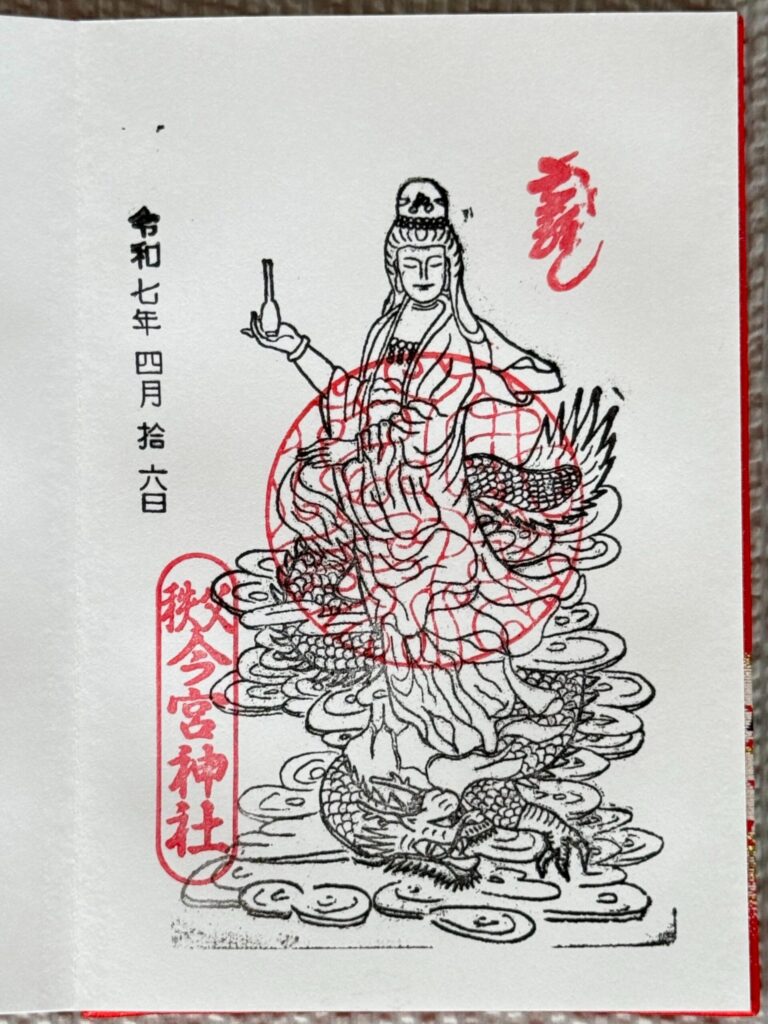 龍
令和七年四月拾六日
秩父
今宮神社